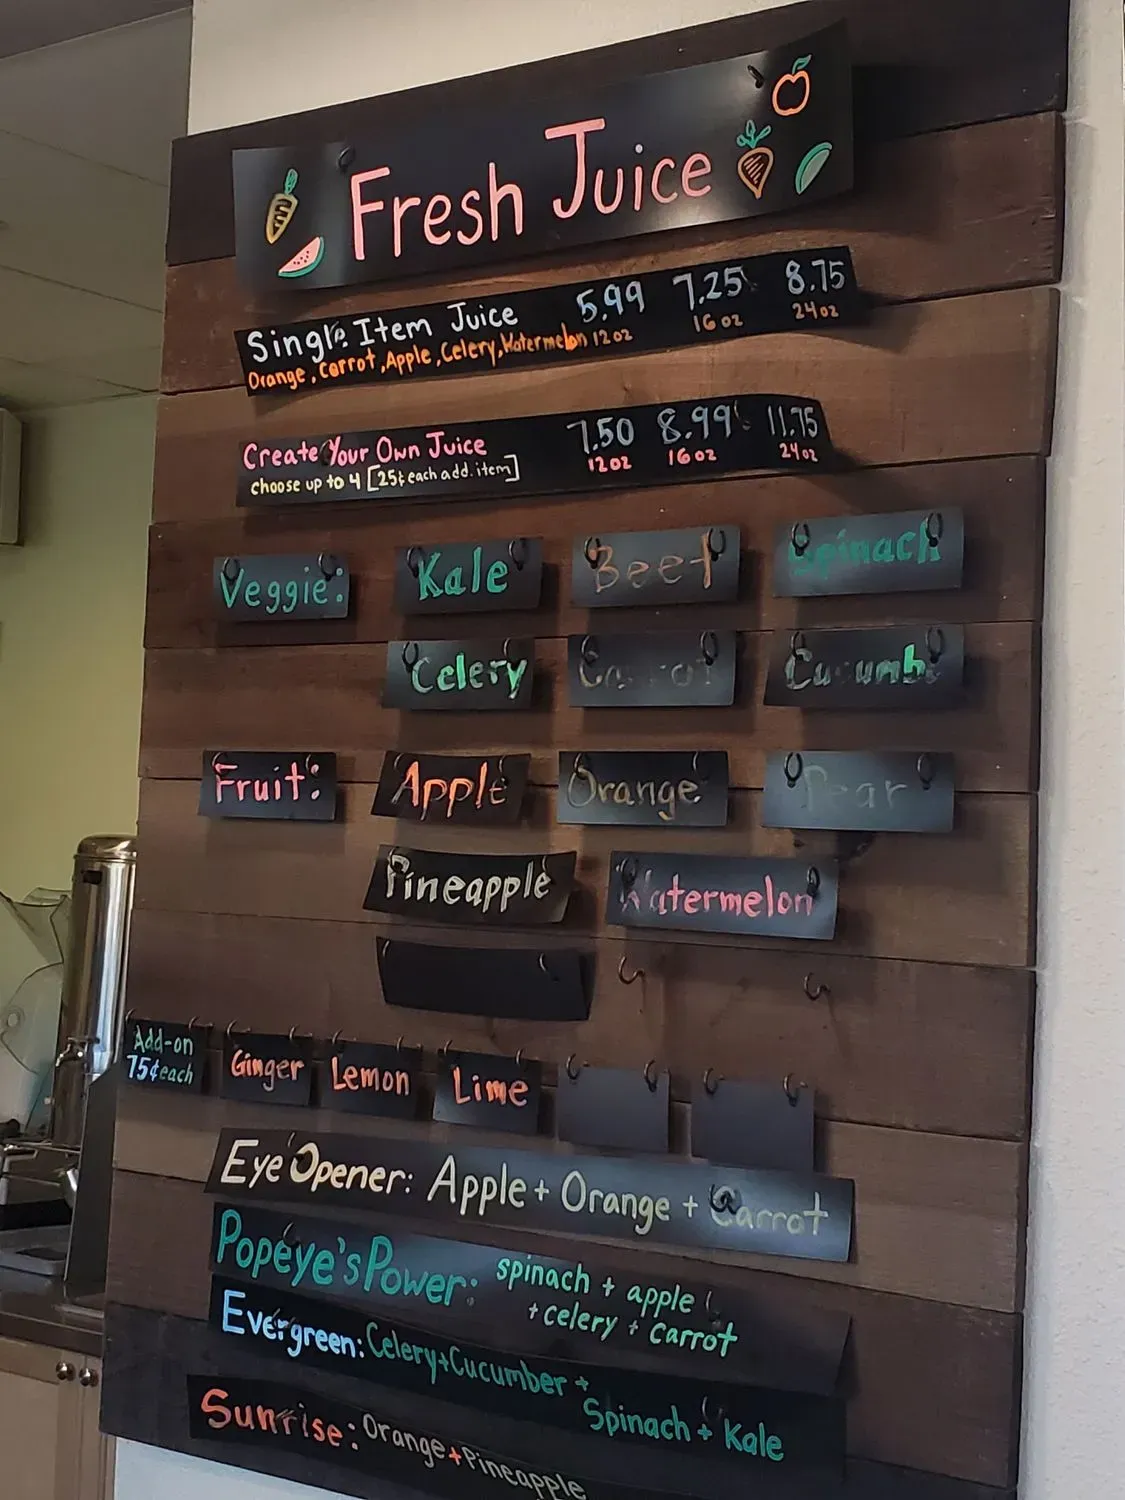 Fresh Juice
Single Item Juice 5.99 7.25 8.75
Orange, Carrot, Apple, Celery, Watermelon 12oz 16oz 24oz
Create Your Own Juice 7.50 8.99 11.75
choose up to 4 [25¢ each add. item] 12oz 16oz 24oz
Veggie: Kale Beet Spinach
Celery Carrot Cucumb
Fruit: Apple Orange Pear
Pineapple Watermelon
Add-on
75¢ each
Ginger Lemon Lime
Eye Opener: Apple + Orange + Carrot
Popeye's Power: spinach + apple
+ celery + carrot
Evergreen: Celery + Cucumber +
Spinach + Kale
Sunrise: Orange + Pineapple